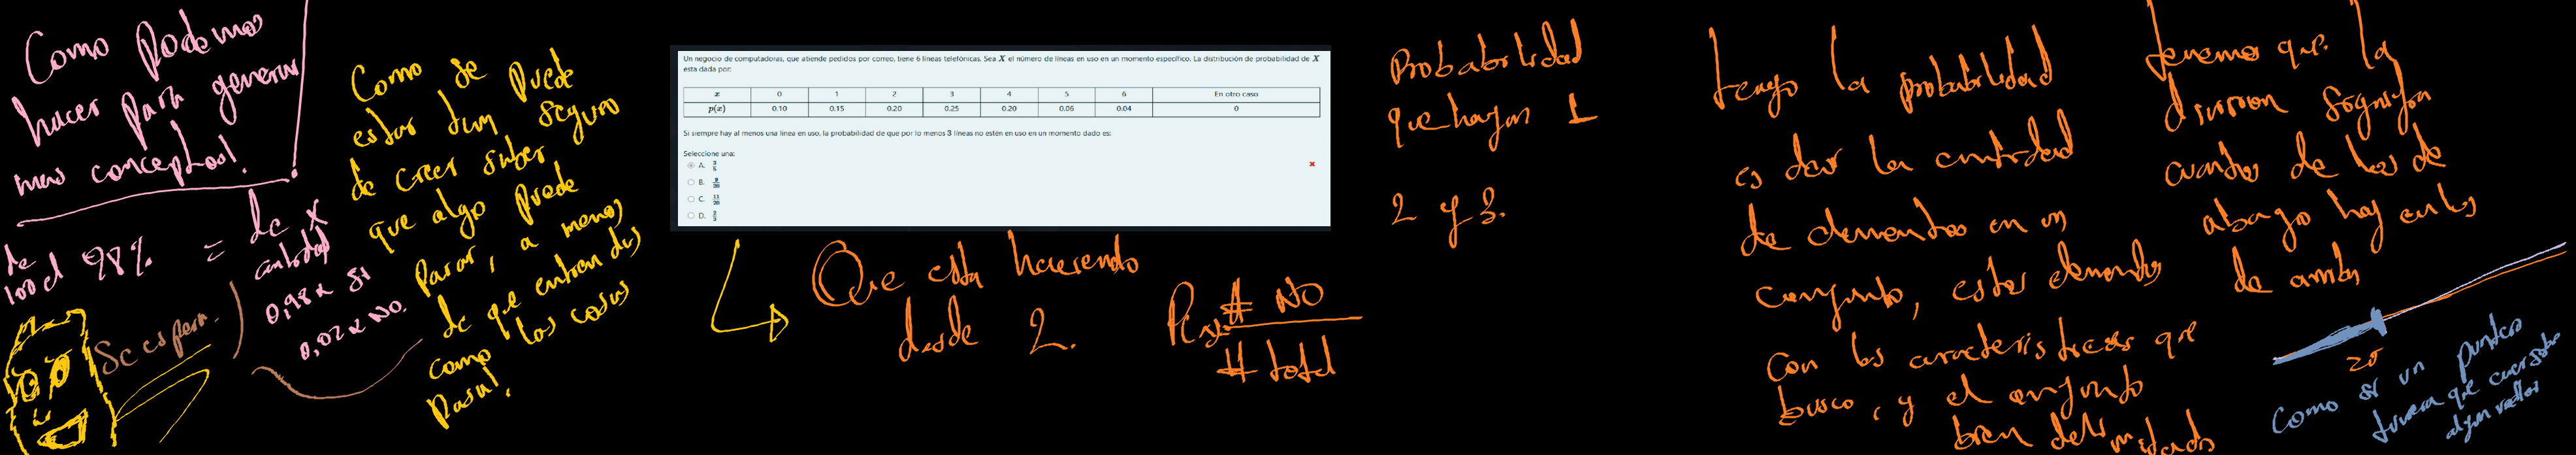 Como podemos
hacer para generar
mas conceptos!
de
100 el 98% = de x
cantidad
0,98 x Si
0,02 x No.
Se espera
Como se puede
estar tan seguro
de creer saber
que algo puede
pasar, a menos
de que entiendas
como las cosas
pasa!
Un negocio de computadoras, que atiende pedidos por correo, tiene 6 líneas telefónicas. Sea X el número de líneas en uso en un momento específico. La distribución de probabilidad de X
esta dada por:
x 0 1 2 3 4 5 6 En otro caso
p(x) 0.10 0.15 0.20 0.25 0.20 0.06 0.04 0
Si siempre hay al menos una línea en uso, la probabilidad de que por lo menos 3 líneas no estén en uso en un momento dado es:
Seleccione una:
A. 3/5
B. 9/20
C. 11/20
D.
Que esta haciendo
desde 2.
# No
# total
Probabilidad
que hayan 1
2 y 3.
tengo la probabilidad
es dar la cantidad
de elementos en un
conjunto, estos elementos
Con las caracteristicas que
busco, y el conjunto
bien delimitado
tenemos que la
division significa
cuantos de los de
abajo hay en los
de arriba
20
Como si un puntero
tuviera que caer sobre
algun valor